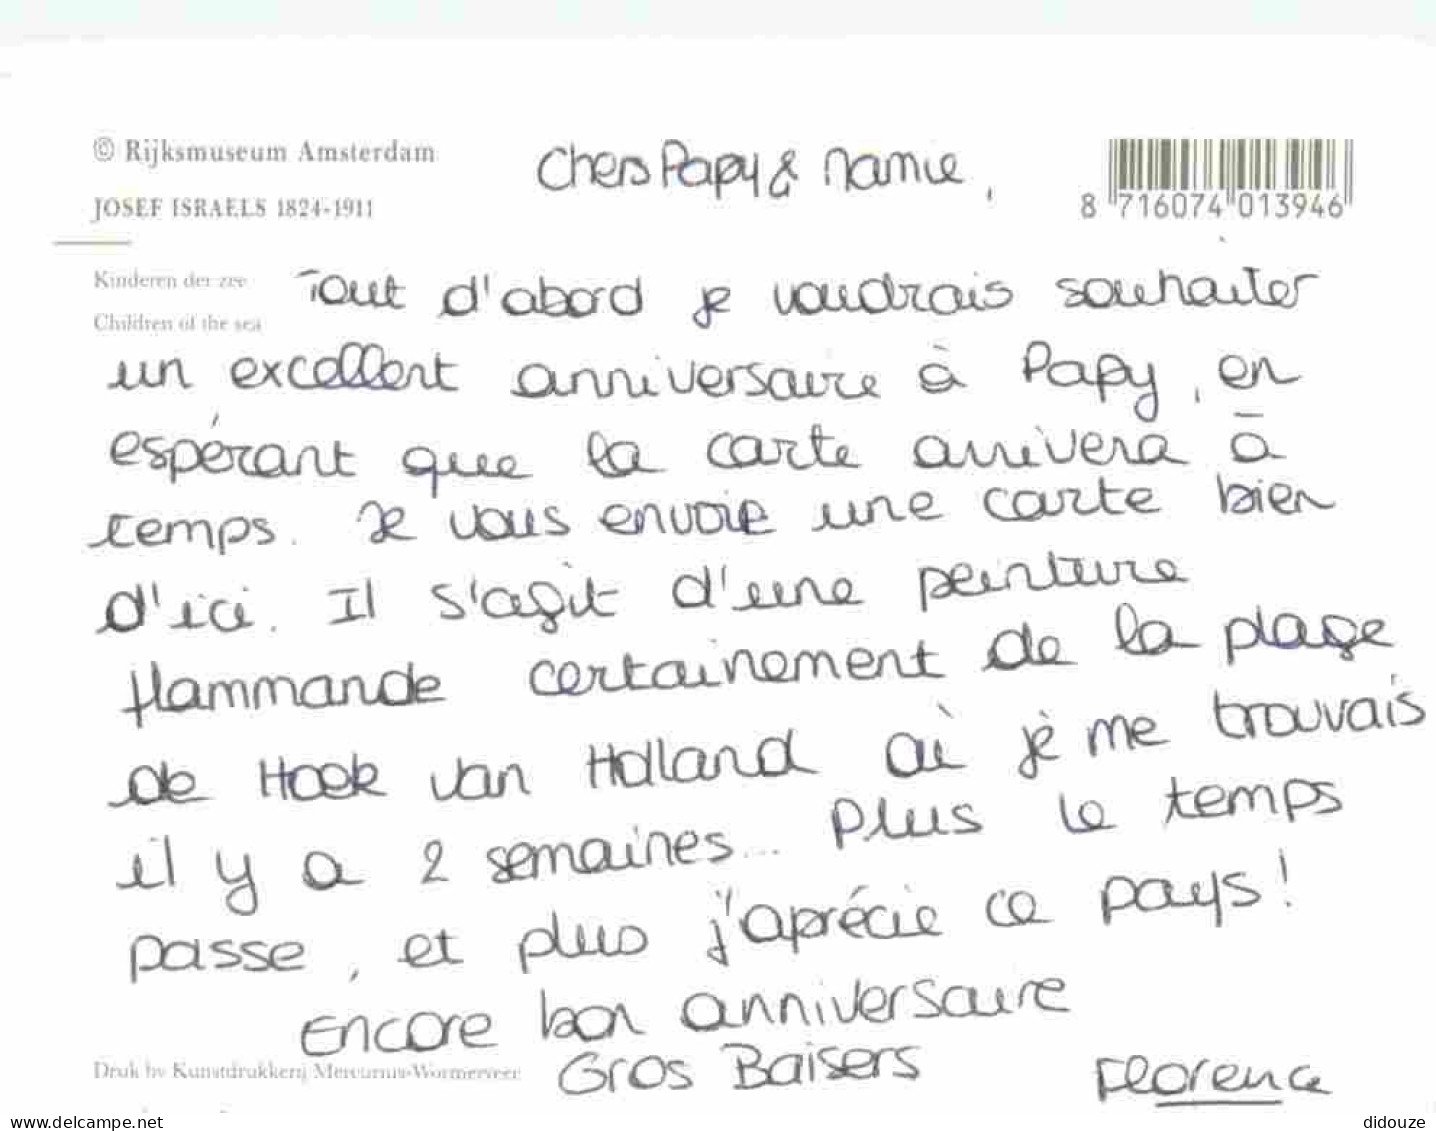 © Rijksmuseum Amsterdam
JOSEF ISRAELS 1824-1911
Chers Papy & Mamie,
8 716074 013946
Kinderen der zee
Children of the sea
Tout d'abord je voudrais souhaiter
un excellent anniversaire à Papy, en
espérant que la carte arrivera à
temps. Je vous envoie une carte bien
d'ici. Il s'agit d'une peinture
flammande certainement de la plage
de Hoek van Holland où je me trouvais
il y a 2 semaines... Plus le temps
passe, et plus j'aprécie ce pays!
Encore bon anniversaire
Gros Baisers
Florence
Druk bv Kunstdrukkerij Mercurius-Wormerveer
delcampe.net
didouze